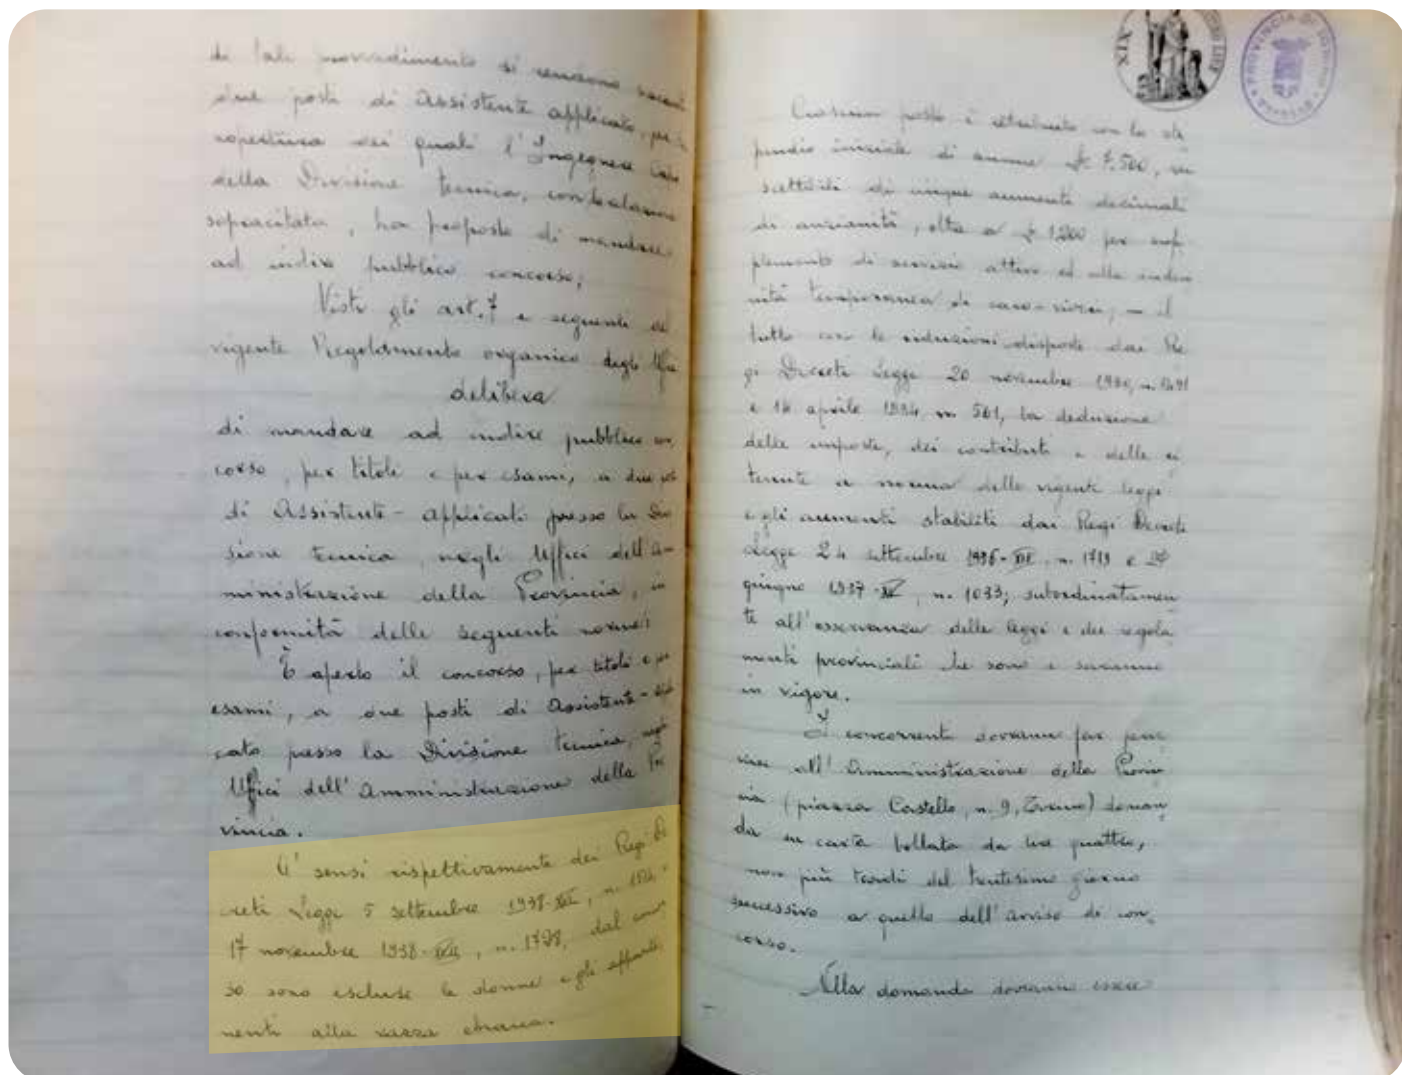 di tali provvedimento si rendono vacanti
due posti di Assistente applicato, per la
copertura dei quali l'Ingegnere Capo
della Divisione tecnica, con relazione
sopracitata, ha proposto di mandare
ad indire pubblico concorso;
Visti gli art. 7 e seguenti del
vigente Regolamento organico degli Uffici
delibera
di mandare ad indire pubblico con
corso, per titoli e per esami, a due posti
di Assistente-applicati presso la Divi
sione tecnica, negli Uffici dell'Am=
ministrazione della Provincia, in
conformità delle seguenti norme:
È aperto il concorso, per titoli e per
esami, a due posti di Assistente-
cato presso la Divisione tecnica, negli
Uffici dell'Amministrazione della Pro
vincia.
A' sensi rispettivamente dei Regi De
creti Legge 5 settembre 1938-XVI, n.
17 novembre 1938-XVII, n. 1728, dal concor
so sono escluse le donne e gli apparte
nenti alla razza ebraica.
XIX
PROVINCIA DI TORINO
Ciascun posto è retribuito con lo sti
pendio iniziale di annue £. 7.500, su
scettibili di cinque aumenti decimali
di anzianità, oltre a £ 1200 per sup
plemento di servizio attivo ed alla inden
nità temporanea di caro-viveri, - il
tutto con le riduzioni disposte dai Re
gi Decreti Legge 20 novembre 1930, n. 1491
e 14 aprile 1934, n. 561, la deduzione
delle imposte, dei contributi e delle ri
tenute a norma delle vigenti leggi
e gli aumenti stabiliti dai Regi Decreti
Legge 24 settembre 1936-XIV, n. 1719 e 27
giugno 1937-XV, n. 1033; subordinatamen
te all'osservanza delle leggi e dei regola
menti provinciali che sono e saranno
in vigore.
I concorrenti dovranno far perve
nire all'Amministrazione della Provin
cia (piazza Castello, n. 9, Torino) doman
da su carta bollata da lire quattro,
non più tardi del trentesimo giorno
successivo a quello dell'avviso di con
corso.
Nella domanda dovranno essere